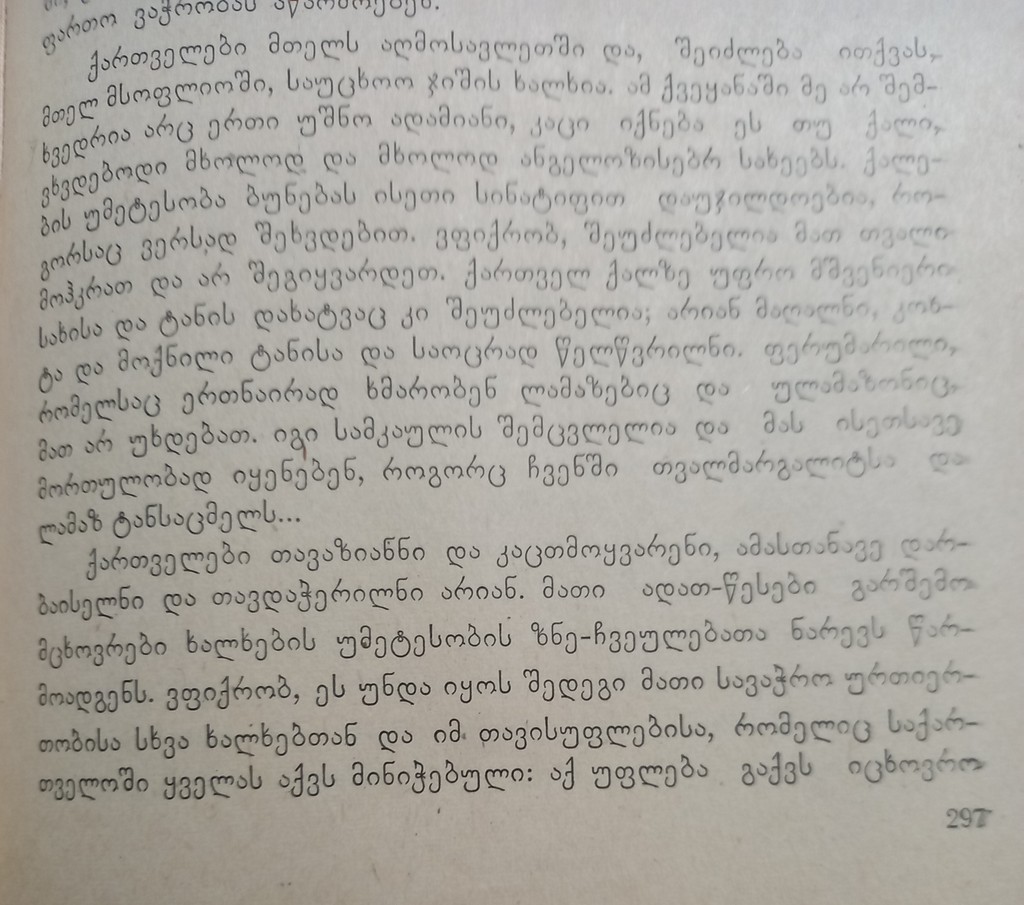 ფართო ვაჭრობას აწარმოებენ.
ქართველები მთელს აღმოსავლეთში და, შეიძლება ითქვას,
მთელ მსოფლიოში, საუცხოო ჯიშის ხალხია. ამ ქვეყანაში მე არ შემ-
ხვედრია არც ერთი უშნო ადამიანი, კაცი იქნება ეს თუ ქალი,
ვხვდებოდი მხოლოდ და მხოლოდ ანგელოზისებრ სახეებს. ქალე-
ბის უმეტესობა ბუნებას ისეთი სინატიფით დაუჯილდოებია, რო-
გორსაც ვერსად შეხვდებით. ვფიქრობ, შეუძლებელია მათ თვალი
მოჰკრათ და არ შეგიყვარდეთ. ქართველ ქალზე უფრო მშვენიერი
სახისა და ტანის დახატვაც კი შეუძლებელია; არიან მაღალნი, კოხ-
ტა და მოქნილი ტანისა და საოცრად წელწვრილნი. ფერუმარილი,
რომელსაც ერთნაირად ხმარობენ ლამაზებიც და ულამაზონიც,
მათ არ უხდებათ. იგი სამკაულის შემცვლელია და მას ისეთსავე
მორთულობად იყენებენ, როგორც ჩვენში თვალმარგალიტსა და
ლამაზ ტანსაცმელს...
ქართველები თავაზიანნი და კაცთმოყვარენი, ამასთანავე დარ-
ბაისელნი და თავდაჭერილნი არიან. მათი ადათ-წესები გარშემო
მცხოვრები ხალხების უმეტესობის ზნე-ჩვეულებათა ნარევს წარ-
მოადგენს. ვფიქრობ, ეს უნდა იყოს შედეგი მათი სავაჭრო ურთიერ-
თობისა სხვა ხალხებთან და იმ თავისუფლებისა, რომელიც საქარ-
თველოში ყველას აქვს მინიჭებული: აქ უფლება გაქვს იცხოვრო
297